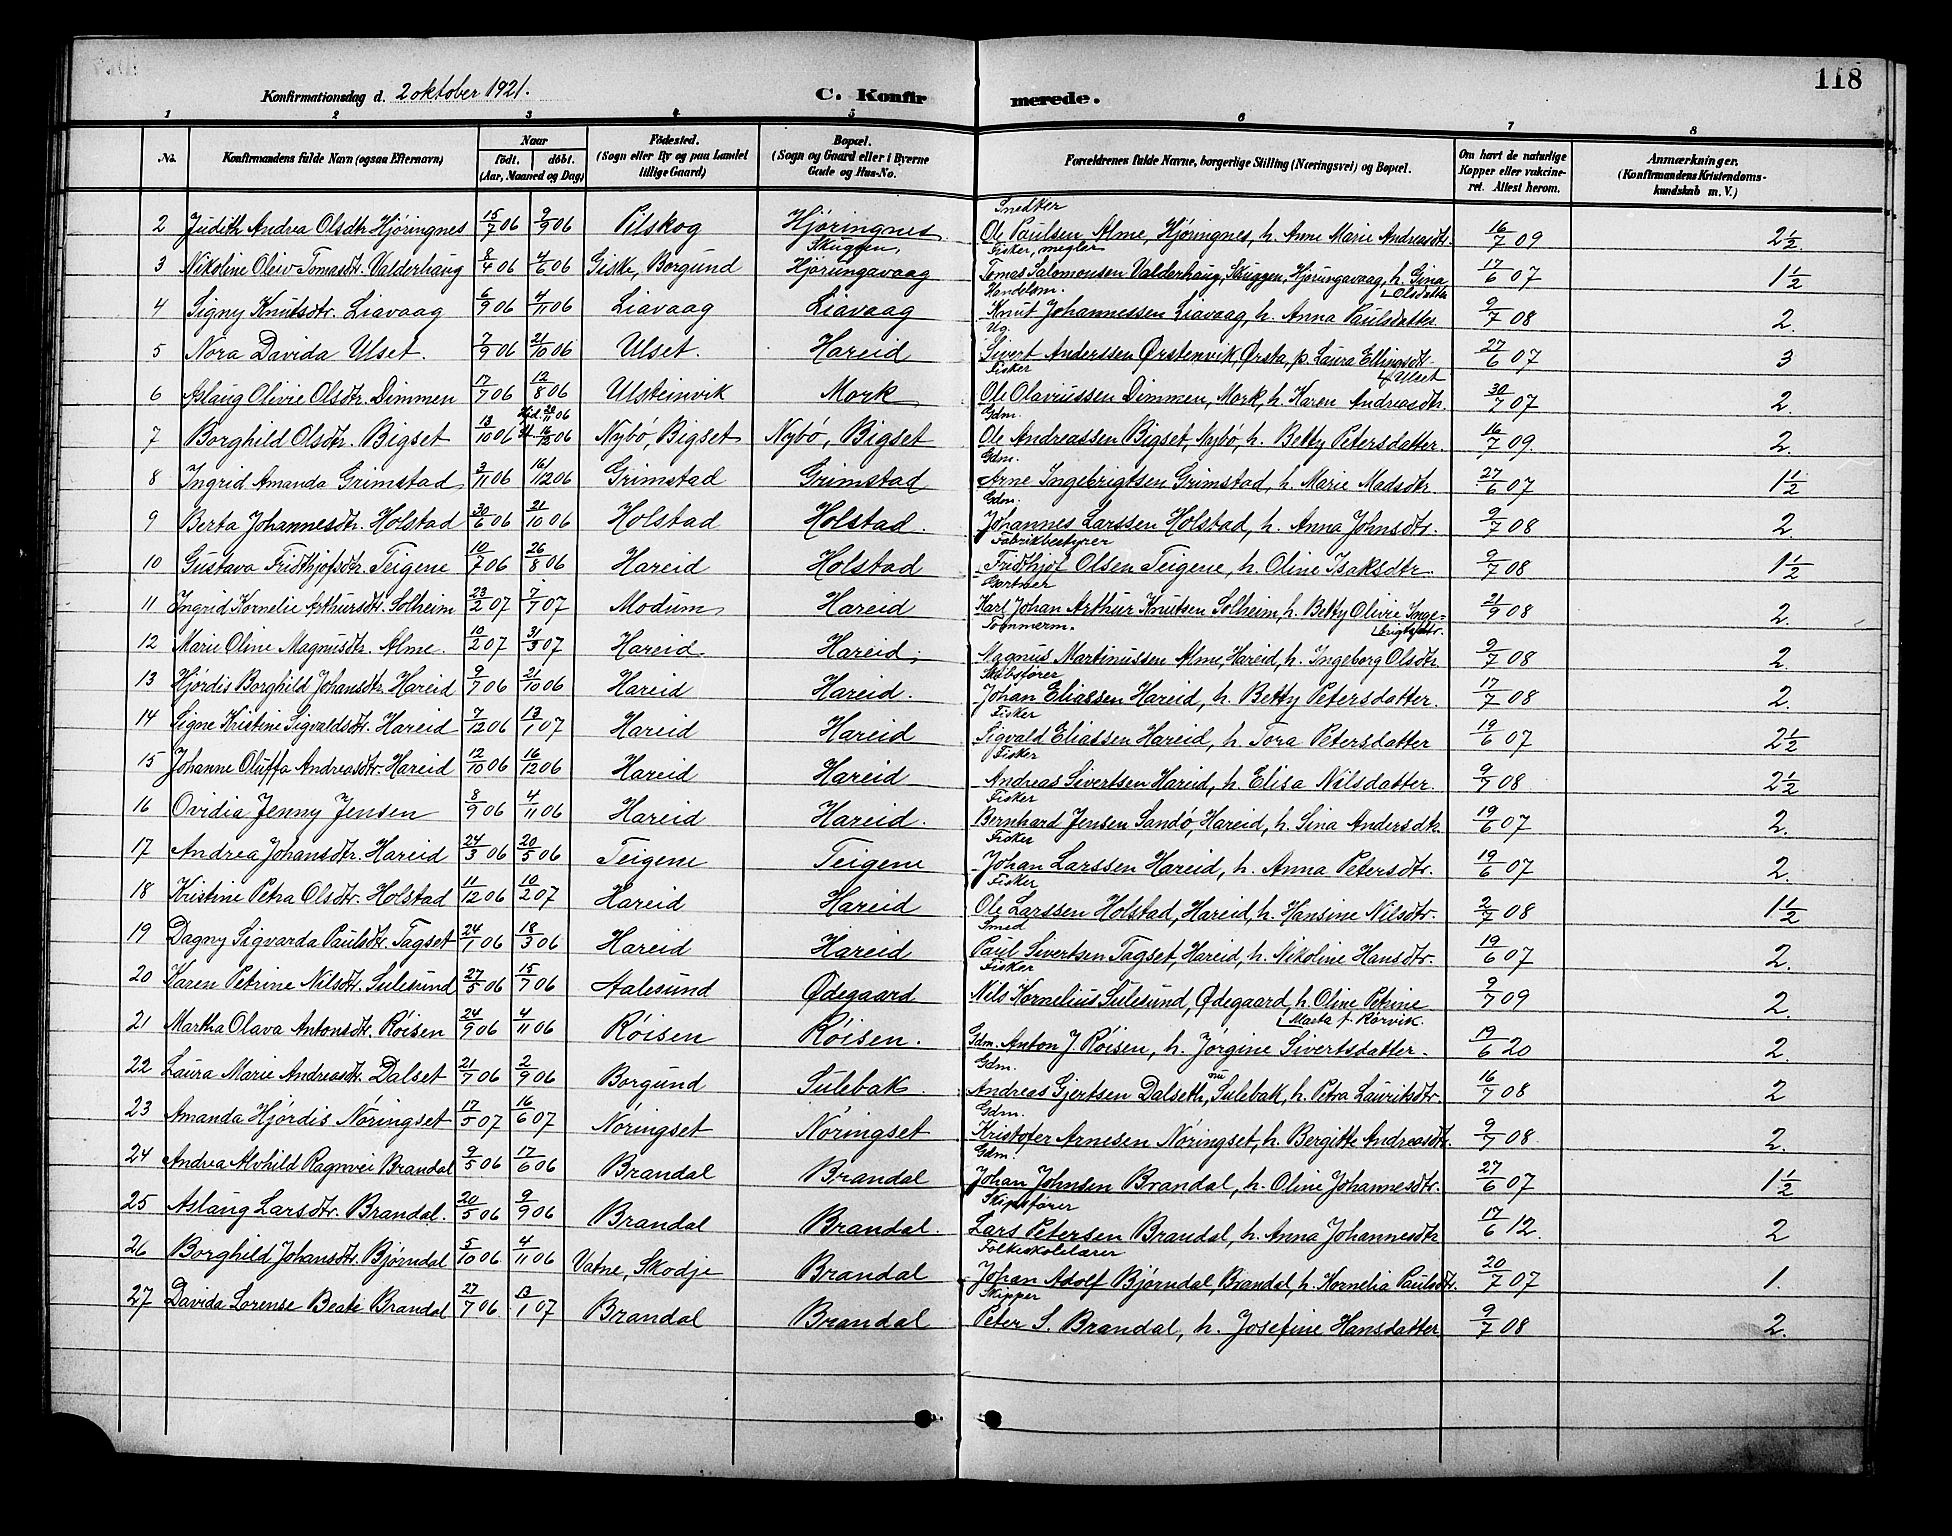 118
Konfirmationsdag d. 2 oktober 1921. C. Konfirmerede.
1 2 3 4 5 6 7 8
No. Konfirmandens fulde Navn (ogsaa Efternavn) Naar födt. döbt. (Aar, Maaned og Dag) Födested. (Sogn eller By og paa Landet tillige Gaard) Bopæl. (Sogn og Gaard eller i Byerne Gade og Hus-No. Forældrenes fulde Navne, borgerlige Stilling (Næringsvei) og Bopæl. Om havt de naturlige Kopper eller vakcineret. Attest herom. Anmærkninger. (Konfirmandens Kristendomskundskab m. V.)
Snedker
2 Judith Andrea Olsdtr Hjöringnes 15/7 06 9/9 06 Pilskog Hjöringnes Ole Paulsen Alme, Hjöringnes, h. Anne Marie Andreasdtr. 16/7 09 2½.
Skuggen, Fisker, megler
3 Nikoline Oliv Tomasdtr. Valderhaug 8/4 06 4/6 06 Giske, Borgund Hjörungavaag Tomas Salomonsen Valderhaug, Skuggen, Hjörungavaag, h. Gina Olsdatter 17/6 07 1½
Handelsm.
4 Signy Knutsdtr. Liavaag 6/9 06 4/11 06 Liavaag Liavaag Knut Johannessen Liavaag, h. Anna Paulsdatter 9/7 08 2.
Ug.
5 Nora Davida Ulset. 7/9 06 21/10 06 Ulset. Hareid Sivert Anderssen Ørstenvik, Ørsta, p. Laura Ellingsdtr. Ulset 27/6 07 3
Fisker
6 Aslaug Olivie Olsdtr. Dimmen 17/7 06 12/8 06 Ulsteinvik Mork Ole Olavussen Dimmen, Mork, h. Karen Andreasdtr. 30/7 07 2.
Gdm.
7 Borghild Olsdtr. Bigset 13/10 06 Nybö, Bigset Nybö, Bigset Ole Andreassen Bigset, Nybö, h. Betty Petersdatter. 16/7 09. 2.
Gdm.
8 Ingrid Amanda Grimstad 3/11 06 16/12 06 Grimstad Grimstad Arne Ingebrigtsen Grimstad, h. Marie Madsdtr. 27/6 07 1½
Gdm.
9 Berta Johannesdtr. Holstad 30/6 06 21/10 06 Holstad Holstad. Johannes Larssen Holstad, h. Anna Johnsdtr. 9/7 08 2
Fabrikbestyrer
10 Gustava Fridthjofsdtr. Teigene 10/7 06 26/8 06 Hareid Holstad Fridthjof Olsen Teigene, h. Oline Isaksdtr. 9/7 08 1½
Gartner
11 Ingrid Kornelie Arthursdtr. Solheim 23/2 07 7/7 07 Modum Hareid Karl Johan Arthur Knutsen Solheim, h. Betty Olivie Inge-brigtsdtr. 21/9 08 2.
Tömmerm.
12 Marie Oline Magnusdtr. Alme. 10/2 07 31/3 07 Hareid. Hareid. Magnus Martinussen Alme, Hareid, h. Ingeborg Olsdtr 9/7 08 2.
Skibsförer
13 Hjördis Borghild Johansdtr. Hareid 9/7 06 21/10 06 Hareid Hareid. Johan Eliassen Hareid, h. Betty Petersdatter. 17/7 08 2.
Fisker
14 Signe Kristine Sigvaldsdtr. Hareid 7/12 06 13/1 07 Hareid Hareid Sigvald Eliassen Hareid, h. Tora Petersdatter 19/6 07 2½
Fisker
15 Johanne Oluffa Andreasdtr. Hareid 12/10 06 16/12 06 Hareid Hareid Andreas Sivertsen Hareid, h. Elisa Nilsdatter. 9/7 08. 2½
Fisker
16 Ovidia Jenny Jensen 8/9 06 4/11 06 Hareid Hareid. Bernhard Jensen Sandö, Hareid, h. Sina Andersdtr. 19/6 07 2.
Fisker
17 Andrea Johansdtr. Hareid 24/3 06 20/5 06 Teigene Teigene Johan Larssen Hareid, h. Anna Petersdtr. 19/6 07 2.
Fisker
18 Kristine Petra Olsdtr. Holstad 11/12 06 10/2 07 Hareid Hareid Ole Larssen Holstad, Hareid, h. Hansine Nilsdtr. 2/7 08 1½
Smed
19 Dagny Sigvarda Paulsdtr. Tagset 24/1 06 18/3 06 Hareid Hareid Paul Sivertsen Tagset, Hareid, h. Nikoline Hansdtr. 19/6 07 2.
Fisker
20 Karen Petrine Nilsdtr. Sulesund 27/5 06 15/7 06 Aalesund Ødegaard Nils Kornelius Sulesund, Ødegaard, h. Oline Petrine Marta f. Rørvik. 9/7 09 2.
21 Martha Olava Antonsdtr. Röisen 24/9 06 4/11 06 Röisen Röisen. Gdm. Anton J. Röisen, h. Jörgine Sivertsdatter. 19/6 20 2.
Gdm.
22 Laura Marie Andreasdtr. Dalset 21/7 06 2/9 06 Borgund Sulebak Andreas Gjertsen Dalseth, nu Sulebak, h. Petra Lauritsdtr. 16/7 08 2
Gdm.
23 Amanda Hjördis Nöringset 17/5 07 16/6 07 Nöringset Nöringset Kristofer Arnesen Nöringset, h. Bergitte Andreasdtr. 9/7 08. 2.
Gdm.
24 Andrea Alvhild Ragnvei Brandal 9/5 06 17/6 06 Brandal Brandal Johan Johnsen Brandal, h. Oline Johannesdtr. 27/6 07 1½
Skipsförer
25 Aslaug Larsdtr. Brandal. 20/5 06 9/9 06 Brandal Brandal. Lars Petersen Brandal, h. Anna Johannesdtr 17/6 12. 2
Folkeskolelærer
26 Borghild Johansdtr. Bjørndal 5/10 06 4/11 06 Vatne, Skodje Brandal Johan Adolf Bjørndal, Brandal, h. Kornelia Paulsdtr. 20/7 07 1.
Skipper
27 Davida Lorense Beate Brandal 27/7 06. 13/1 07 Brandal Brandal Peter S. Brandal, h. Josefine Hansdatter 9/7 08 2.